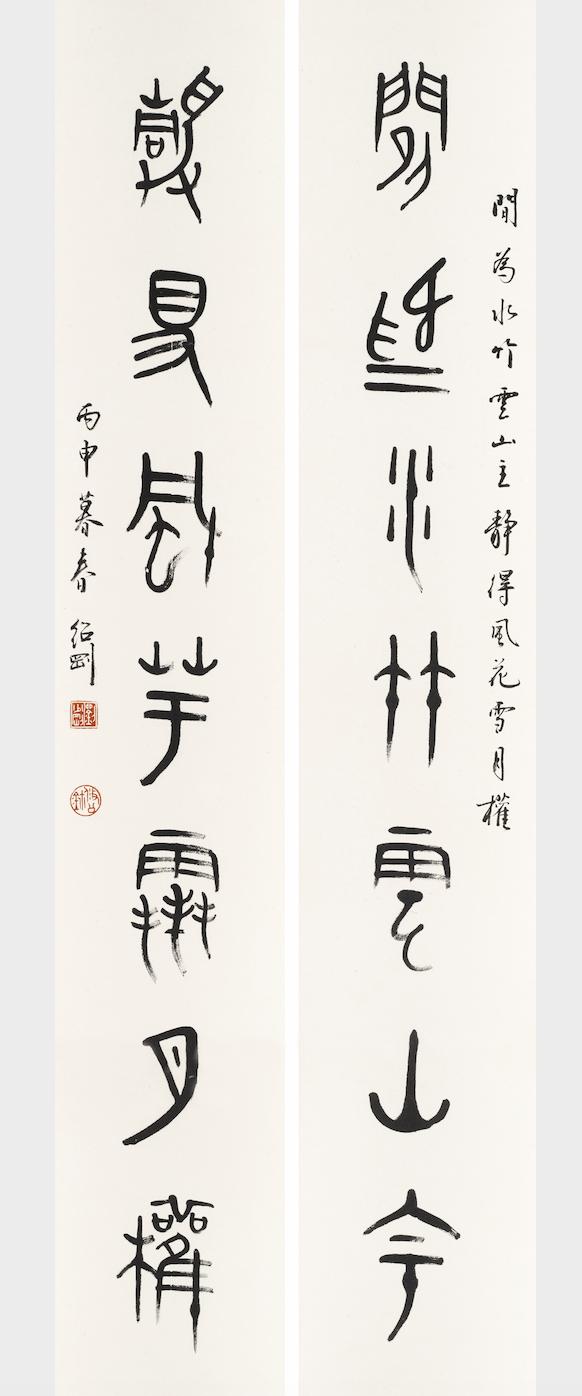 閒為水竹雲山主 靜得風花雪月權
閒為水竹雲山主
靜得風花雪月權
丙申暮春 紹剛